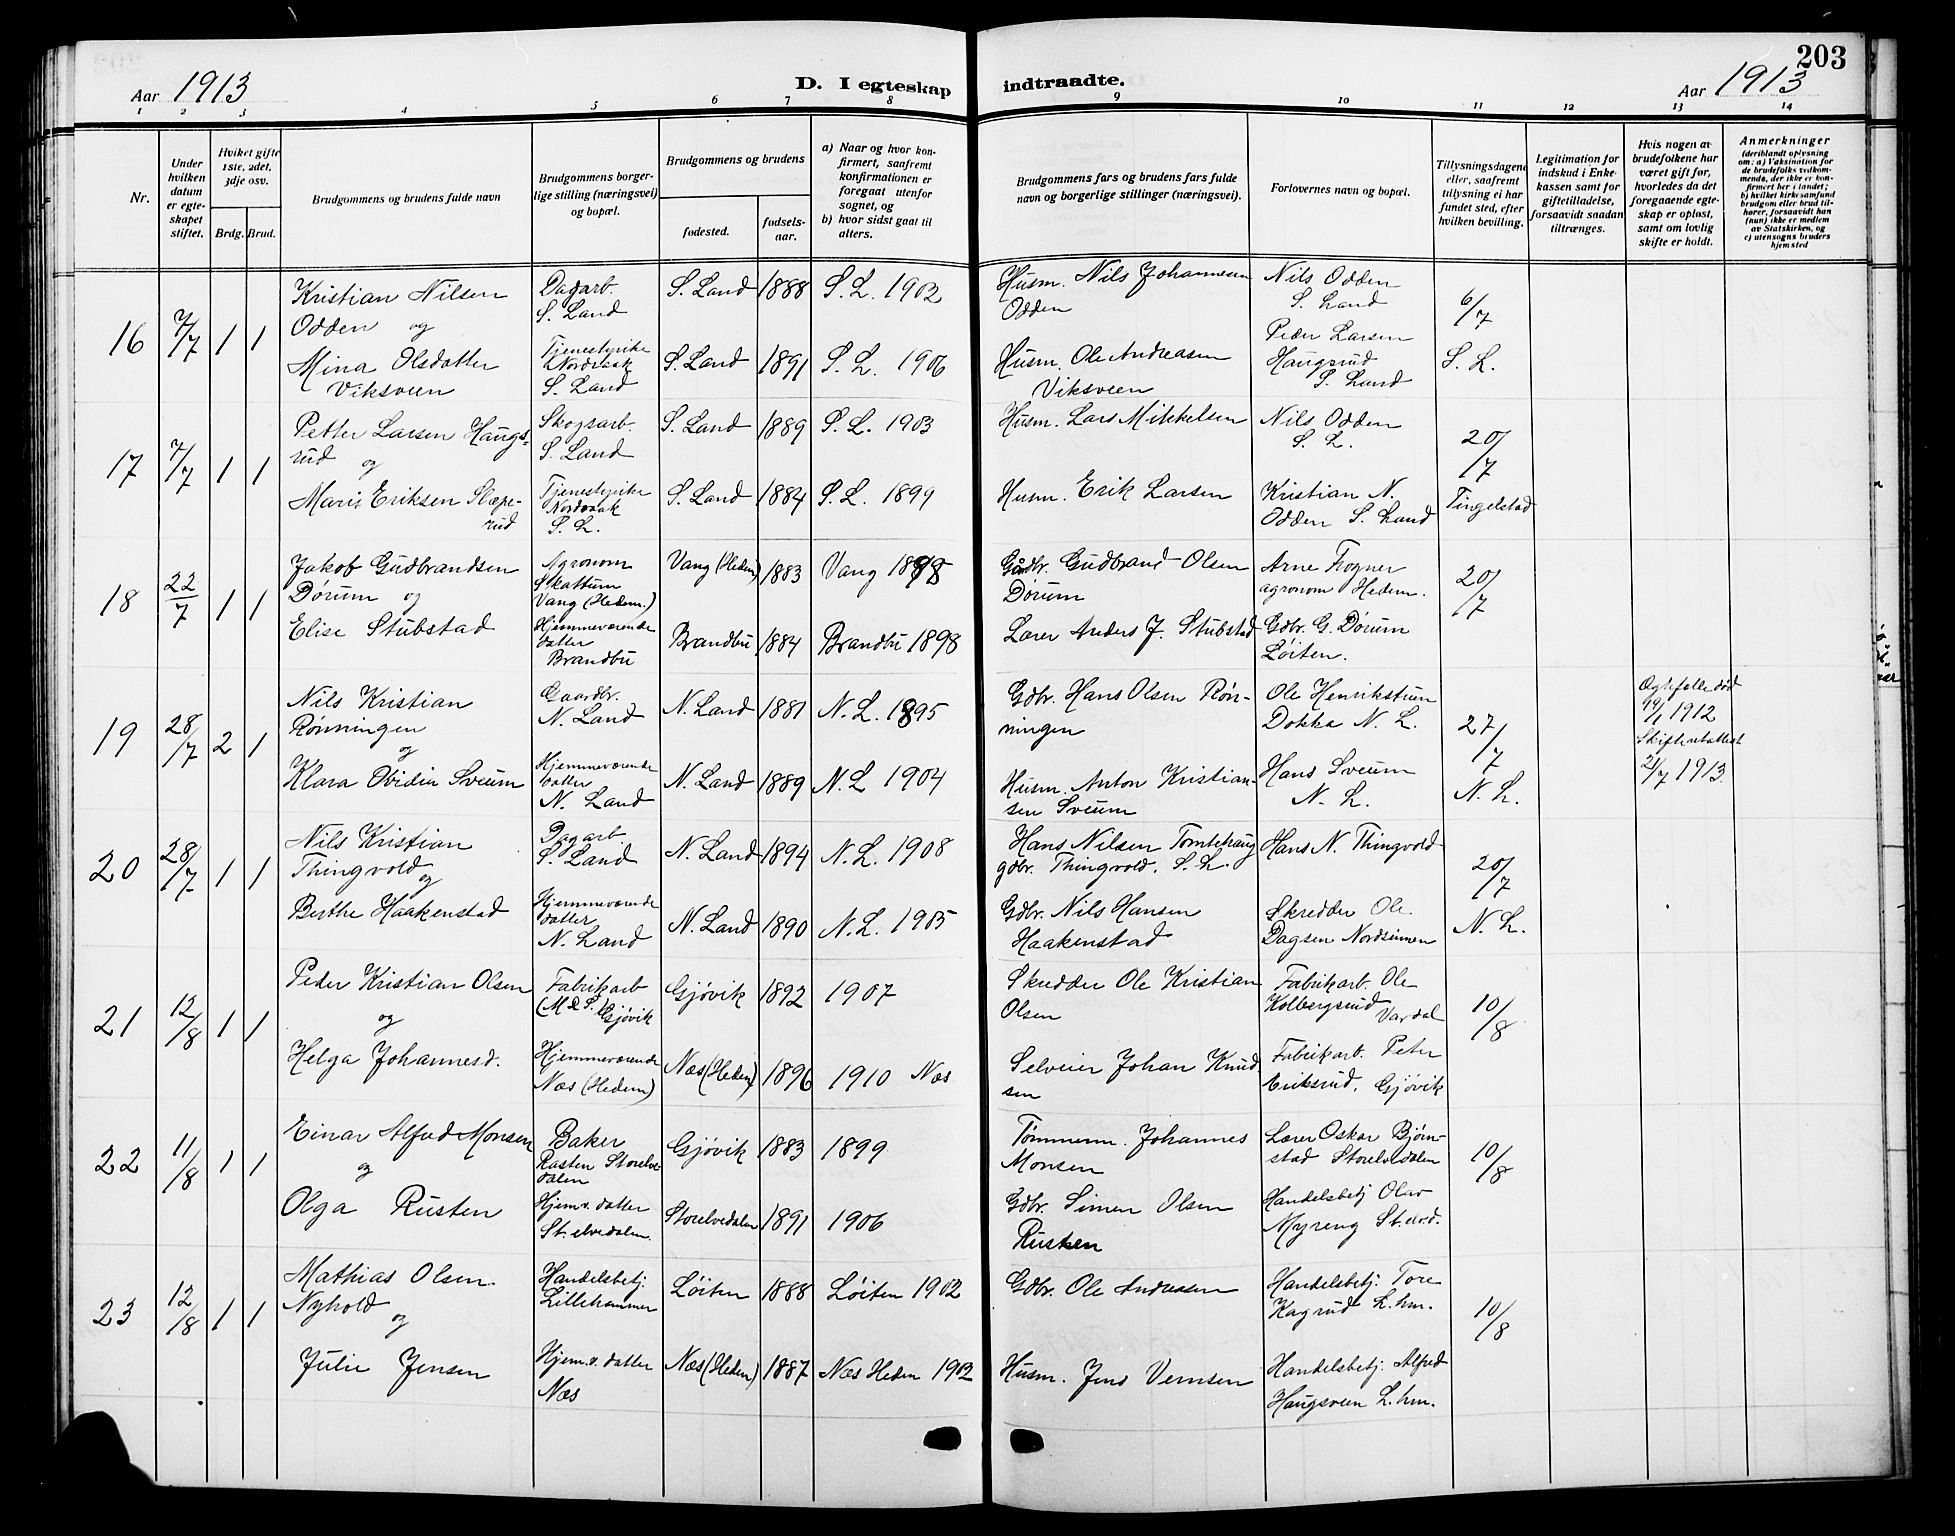 203
Aar 1913
D. I egteskap
indtraadte.
Aar 1913
1 2 3 4 5 6 7 8 9 10 11 12 13 14
Nr.
Under hvilken datum er egteskapet stiftet.
Hviket gifte 1ste, 2det, 3dje osv.
Brdg. Brud.
Brudgommens og brudens fulde navn
Brudgommens borgerlige stilling (næringsvei) og bopæl.
Brudgommens og brudens
fødested.
fødselsaar.
a) Naar og hvor konfirmert, saafremt konfirmationen er foregaat utenfor sognet, og
b) hvor sidst gaat til alters.
Brudgommens fars og brudens fars fulde navn og borgerlige stillinger (næringsvei).
Forlovernes navn og bopæl.
Tillysningsdagene eller, saafremt tillysning ei har fundet sted, efter hvilken bevilling.
Legitimation for indskud i Enkekassen samt for giftetilladelse, forsaavidt saadan tiltrænges.
Hvis nogen av brudefolkene har været gift før, hvorledes da det foregaaende egteskap er opløst, samt om lovlig skifte er holdt.
Anmerkninger
(deriblandt oplysning om: a) Vaksination for de brudefolks vedkommende, der ikke er konfirmert her i landet; b) hvilket kirkesamfund brudgom eller brud tilhører, forsaavidt han (hun) ikke er medlem av Statskirken, og c) utensogns bruders hjemsted
16 7/7 1 1
Kristian Nilsen
Odden og
Mina Olsdatter
Viksveen
Dagarb.
S. Land
Tjenestepike
Nordraak
S. Land
S. Land 1888 S. L. 1902
S. Land 1891 S. L. 1906
Husm. Nils Johannesen
Odden
Husm. Ole Andreasen
Viksveen
Nils Odden
S. Land
Peder Larsen
Haugsrud
S. Land
6/7
S. L.
17 7/7 1 1
Petter Larsen Haugs-
rud og
Marie Eriksen Slæpe-
rud
Skogsarb.
S. Land
Tjenestepike
Nordraak
S. L.
S. Land 1889 S. L. 1903
S. Land 1884 S. L. 1899
Husm. Lars Mikkelsen
Husm. Erik Larsen
Nils Odden
S. L.
Kristian N.
Odden S. Land
20/7
Tingelstad
18 22/7 1 1
Jakob Gudbrandsen
Dørum og
Elise Stubstad
Agronom
Skattum
Vang (Hedem.)
Hjemmeværende
datter
Brandbu
Vang (Hedem) 1883 Vang 1898
Brandbu 1884 Brandbu 1898
Gdbr. Gudbrand Olsen
Dørum
Lærer Anders J. Stubstad
Arne Frogner
agronom Hedem.
Gdbr. G. Dørum
Løiten.
20/7
19 28/7 2 1
Nils Kristian
Rønningen
og
Klara Ovidia Sveum
Gaardbr.
N. Land
Hjemmeværende
datter
N. Land
N. Land 1881 N. L. 1895
N. Land 1889 N. L 1904
Gdbr. Hans Olsen Røn-
ningen
Husm. Anton Kristian-
sen Sveum
Ole Henrikstuen
Dokka N. L.
Hans Sveum
N. L.
27/7
N. L.
Egtefelle død
1912
Skifteattest
21/7 1913
20 28/7 1 1
Nils Kristian
Thingvold
og
Berthe Haakenstad
Dagarb.
S. Land
Hjemmeværende
datter
N. Land
N. Land 1894 N. L. 1908
N. Land 1890 N. L. 1905
Hans Nilsen Tomtehaug
gdbr. Thingvold. S. L.
Gdbr. Nils Hansen
Haakenstad
Hans N. Thingvold
Skredder Ole
Dagsen Nordsinnen
20/7
N. L.
21 12/8 1 1
Peder Kristian Olsen
og
Helga Johannesd.
Fabrikarb
(M & S.) Gjøvik
Hjemmeværende
Næs (Hedem)
Gjøvik 1892 1907
Næs (Hedem) 1896 1910 Næs
Skredder Ole Kristian
Olsen
Selveier Johan Knud
sen
Fabrikarb. Ole
Kolbergsrud
Vardal
Fabrikarb. Peter
Eriksrud, Gjøvik
10/8
22 11/8 1 1
Einar Alfred Monsen
og
Olga Rusten
Baker
Rasten Storelve-
dalen
Hjemv. datter
St. elvedalen.
Gjøvik 1883 1899
Storelvedalen 1891 1906
Tømmerm. Johannes
Monsen
Gdbr. Simen Olsen
Rusten
Lærer Oskar Bjørn-
stad Storelvedalen
Handelsbetj Olav
Myreng St. elvd.
10/8
23 12/8 1 1
Mathias Olsen
Nyhold
og
Julie Jensen
Handelsbetj.
Lillehammer
Hjem.v. datter
Næs
Løiten 1888 Løiten 1902
Næs (Hedem) 1887 Næs Hedem 1902
Gdbr. Ole Andreasen
Husm. Jens Vernsen
Handelsbetj. Tore
Kagrud L.hm.
Handelsbetj. Alfred
Haugsveen L.hm.
10/8